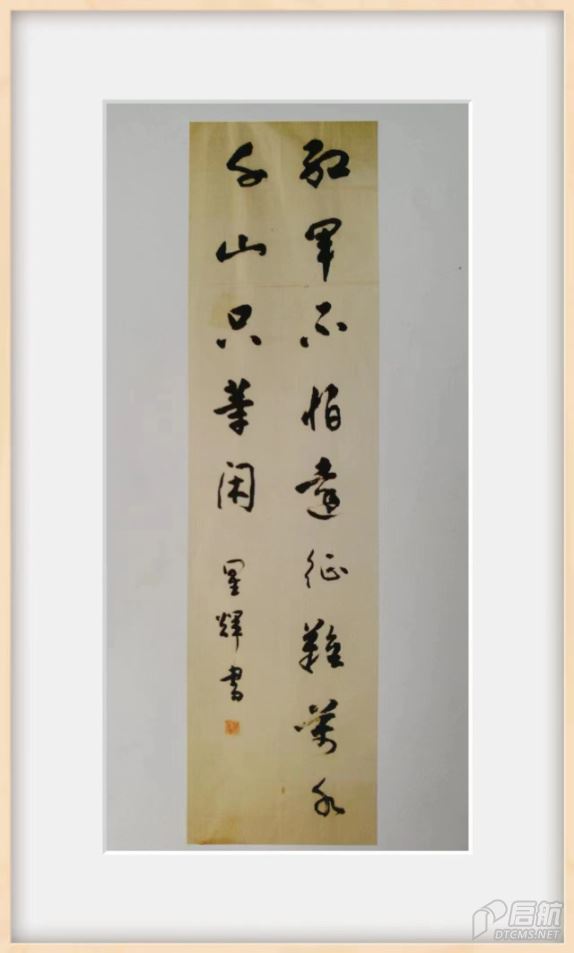 红军不怕远征难万水
千山只等闲
星辉书
启航
DTCMS.NET